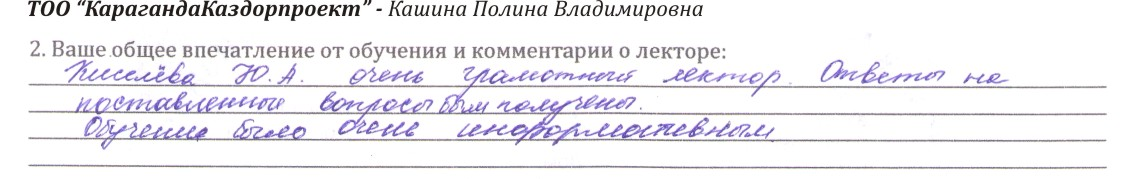 ТОО “КарагандаКаздорпроект” - Кашина Полина Владимировна
2. Ваше общее впечатление от обучения и комментарии о лекторе:
Киселёва Ю.А. очень грамотный лектор. Ответы на
поставленные вопросы были получены.
Обучение было очень информативным